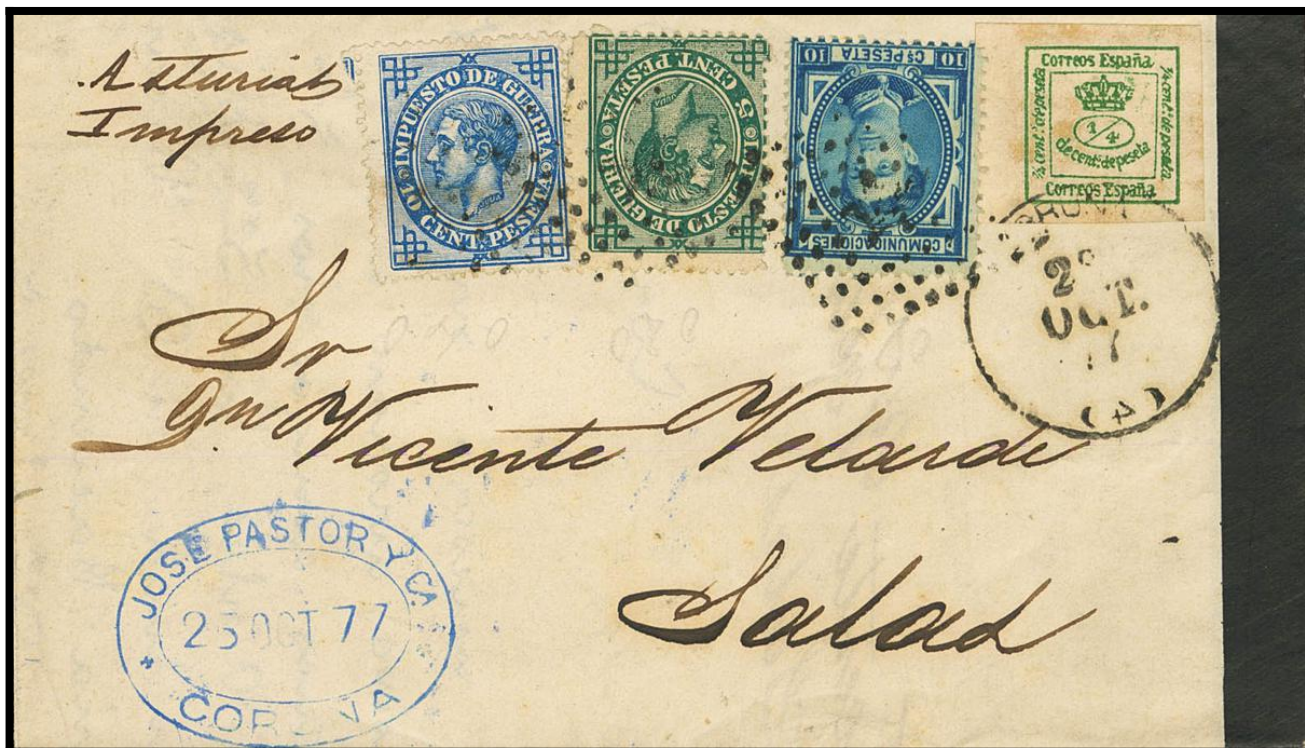 Asturias
Impreso
IMPUESTO DE GUERRA
10 CENT. PESETA
IMPUESTO DE GUERRA
5 CENT. PESETA
10 Cs PESETA 10
COMUNICACIONES
Correos España
¼ cent. de peseta
¼ cent. de peseta
1/4
de cent. de peseta
Correos España
OCT.
(4)
Sr
Dn Vicente Velarde
Salas
JOSE PASTOR Y CA
25 OCT 77
CORUÑA